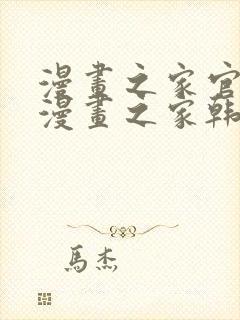 漫畫之家官
漫畫之家韩
馬杰